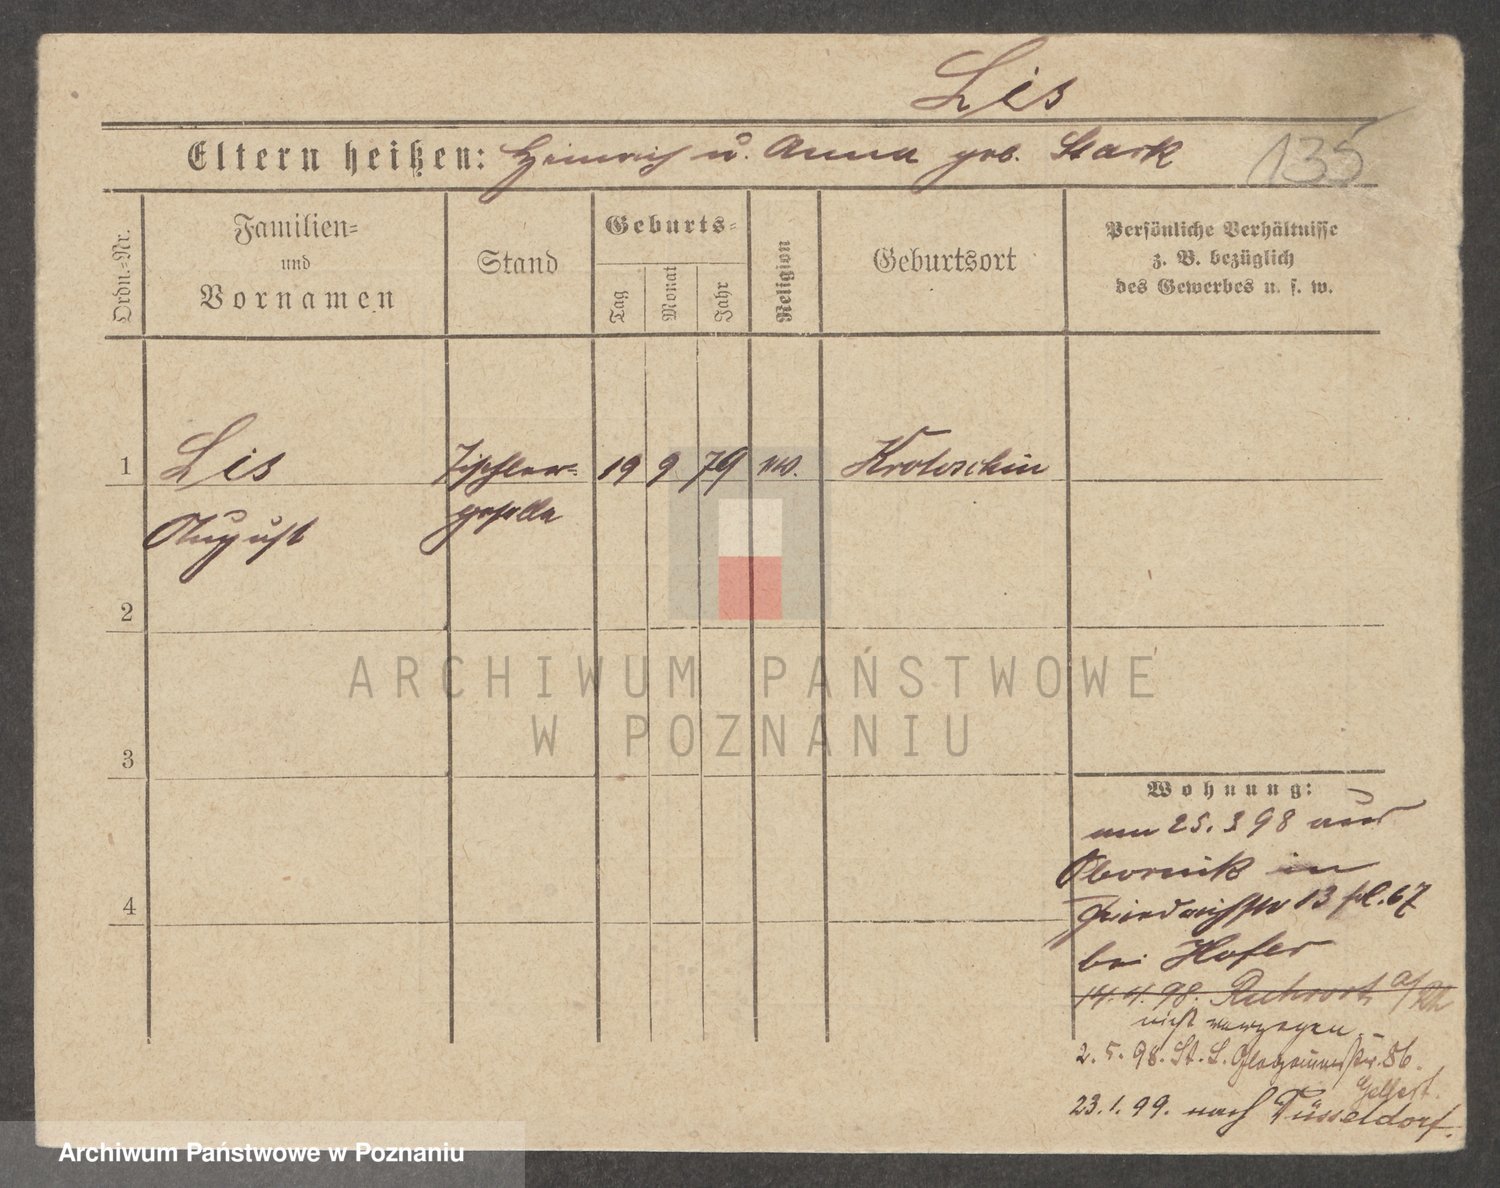 Lis
Eltern heißen: Heinrich u. Anna geb. Stark
135
Ordn.=Nr.
Familien=
und
Vornamen
Stand
Geburts=
Tag
Monat
Jahr
Religion
Geburtsort
Persönliche Verhältnisse
z. B. bezüglich
des Gewerbes u. s. w.
1 Lis Tischler= 19 9 79 Krotoschin
August geselle
2
3
4
ARCHIWUM PAŃSTWOWE
W POZNANIU
Wohnung:
am 25.3 98 aus
Obornik in
Friedrichstr 13 pl. 67
bei Hofer
14.4.98. Ruhrort a/Rh
nicht verzogen
2.5.98. St. L. 86.
23.1.99. nach Düsseldorf.
Archiwum Państwowe w Poznaniu